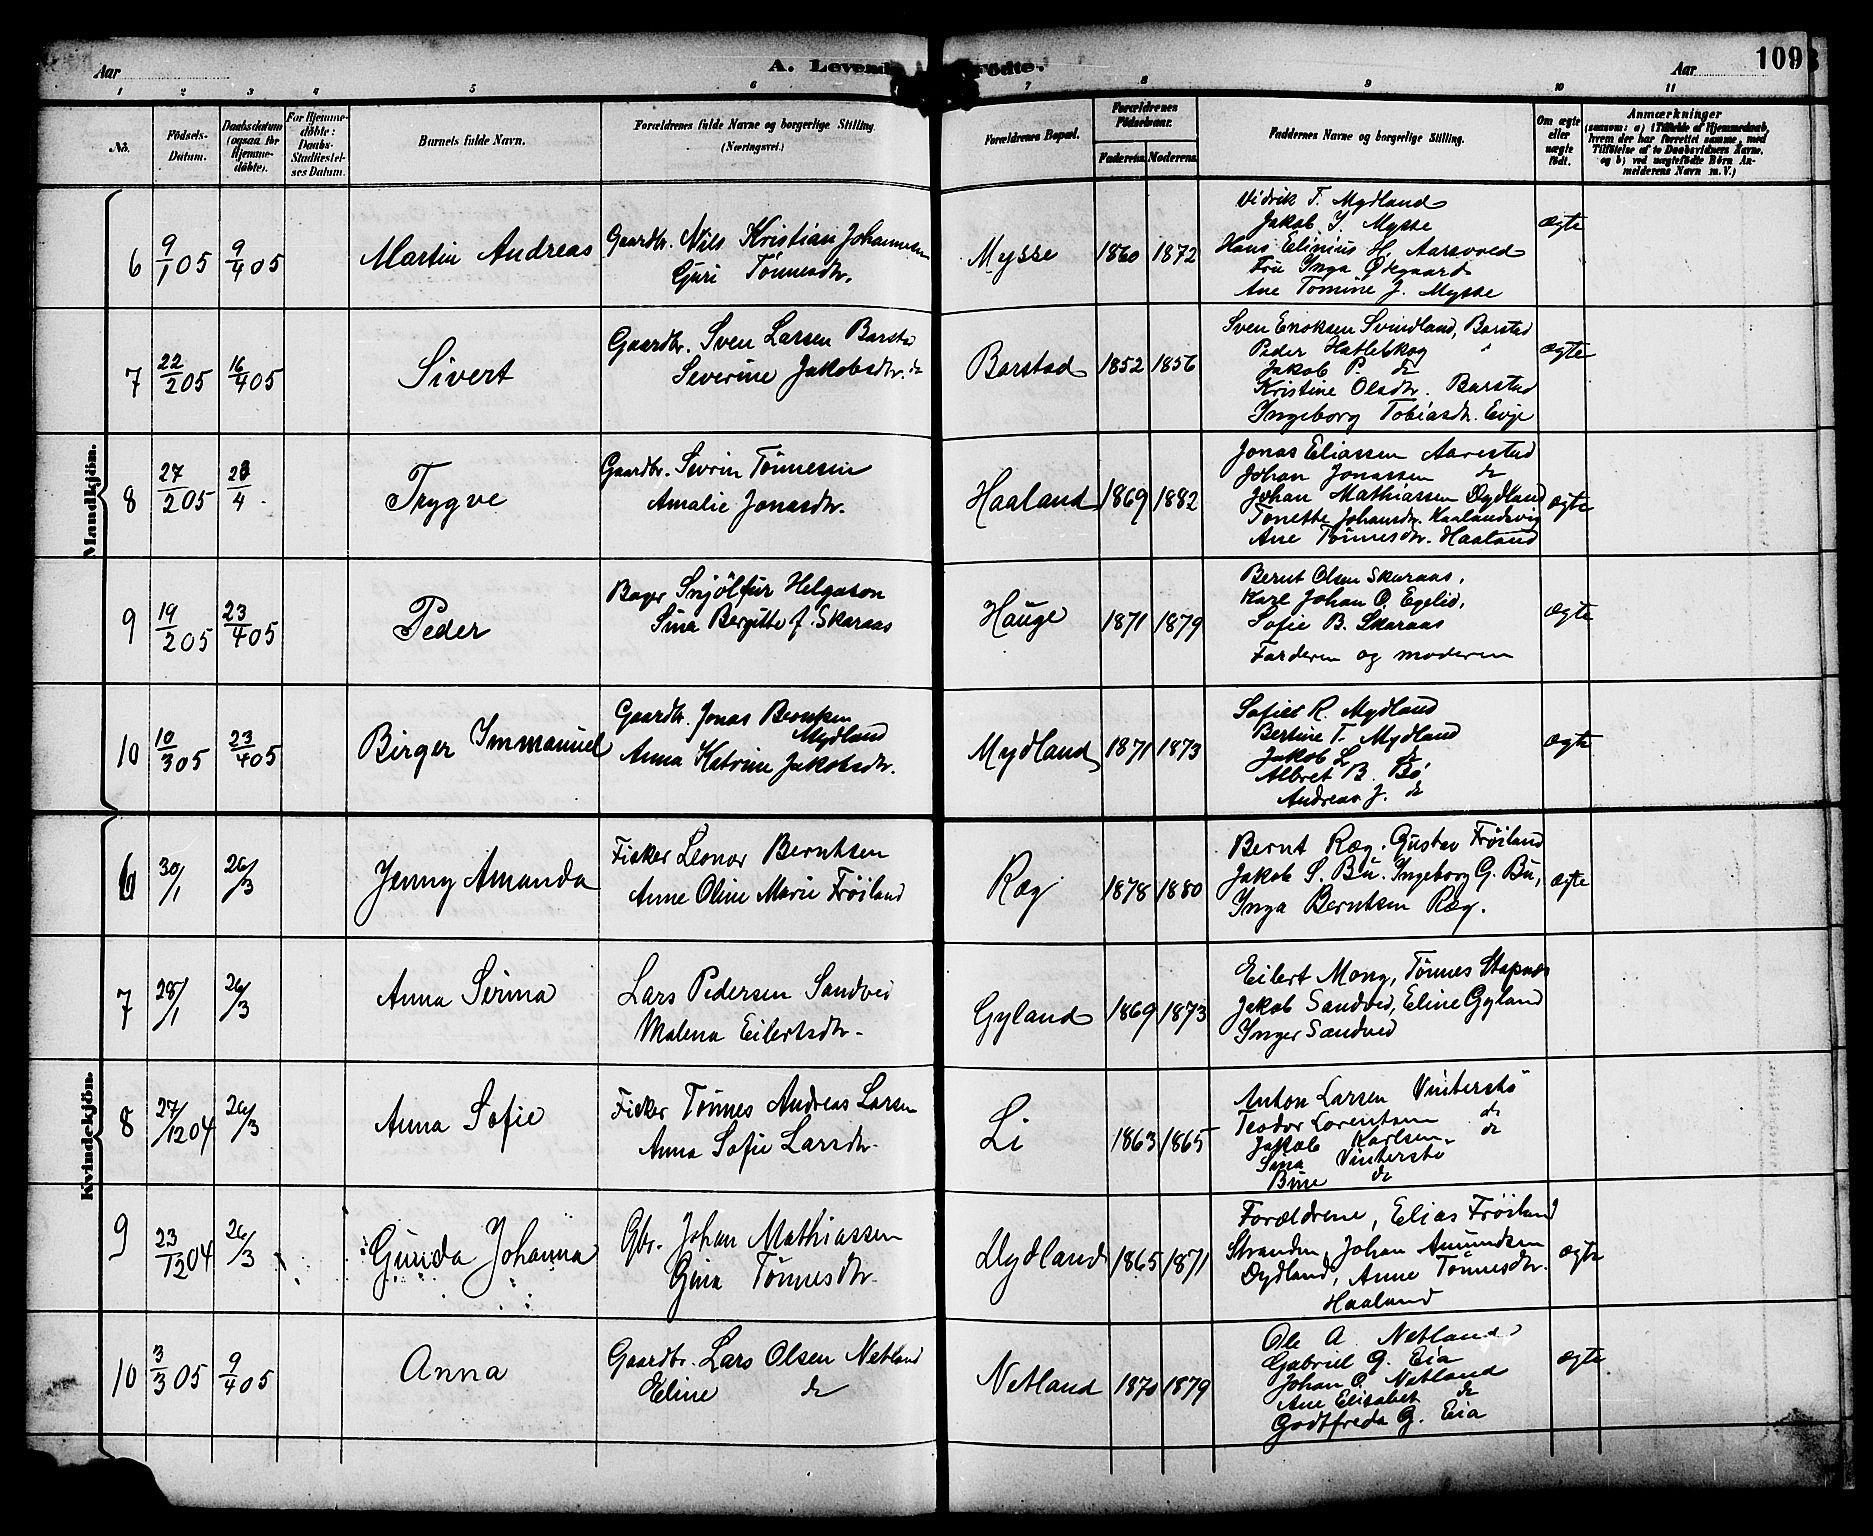 Aar
A. Levend
ødte.
Aar
109
1 2 3 4 5 6 7 8 9 10 11
No.
Födsels-
Datum.
Daabsdatum
(ogsaa for
Hjemme-
döbte).
For Hjemme-
döbte:
Daabs-
Stadfæstel-
ses Datum.
Barnets fulde Navn.
Forældrenes fulde Navne og borgerlige Stilling
(Næringsvei.)
Forældrenes Bopæl.
Forældrenes
Födselsaar.
Faderens. Moderens.
Faddernes Navne og borgerlige Stilling.
Om ægte
eller
uægte
födt.
Anmærkninger
(saasom: a) i Tilfælde af Hjemmedaab,
hvem der har forrettet samme, med
Tilföielse af to Daabsvidners Navne.
og b) ved uægtefödte Börn An-
melderens Navn m. V.)
Mandkjön.
6 9/1 05 9/4 05 Martin Andreas
Gaardbr. Nils Kristian Johannesen
Guri Tönnesdtr.
Mysse 1860 1872
Vidrik T. Mydland
Jakob J. Mysse
Hans Elinius H. Aarsvold
Fru Inga Økgaard
Ane Tomine J. Mysse
ægte
7 22/2 05 16/4 05 Sivert
Gaardbr. Sven Larsen Barstad
Severine Jakobsdtr. do
Barstad 1852 1856
Sven Enoksen Svindland, Barstad
Peder Hatleskog "
Jakob P. do
Kristine Olsdtr. Barstad
Ingeborg Tobiasdtr. Eige
ægte
8 27/2 05 23/4 Trygve
Gaardbr. Sevrin Tönnesen
Amalie Jonasdtr.
Haaland 1869 1882
Jonas Eliassen Aarestad
Johan Jonassen do
Johan Mathiassen Dydland
Tonette Johansdtr. Haalandsvig
Ane Tönnesdtr. Haaland
ægte
9 19/2 05 23/4 05 Peder
Bager Snjölfur Helgason
Sina Bergitte f. Skaraas
Hauge 1871 1879
Bernt Olsen Skaraas,
Karl Johan O. Egelid,
Sofie B. Skaraas
Farderen og moderen
ægte
10 10/3 05 23/4 05 Birger Immanuel
Gaardbr. Jonas Berntsen
Mydland
Anna Katrine Jakobsdtr.
Mydland 1871 1873
Sofie R. Mydland
Bertine T. Mydland
Jakob L. do
Albret B. Bö
Andreas J. do
ægte
Kvindekjön.
6 30/1 26/3 Jenny Amanda
Fisker Leonor Berntsen
Anne Oline Marie Fröiland
Ræg 1878 1880
Bernt Ræg. Gustav Fröiland
Jakob S. Bu. Ingeborg G. Bu,
Inga Berntsen Ræg.
ægte
7 28/1 26/3 Anna Serina
Lars Pedersen Sandved
Malena Eilertsdtr.
Gyland 1869 1873
Eilert Mong, Tönnes Stapnes
Jakob Sandved, Eline Gyland
Inger Sandved
8 27/12 04 26/3 Anna Sofie
Fisker Tönnes Andreas Larsen
Anna Sofie Larsdtr.
Li 1863 1865
Anton Larsen Vinterstö
Teodor Lorentsen do
Jakob Karlsen do
Sina Vinterstö
Bine do
9 23/12 04 26/3 Gunda Johanna
Gbr. Johan Mathiassen
Gina Tönnesdtr.
Dydland 1865 1871
Forældrene, Elias Fröiland
Stranden, Johan Amundsen
Dydland, Anne Tönnesdtr.
Haaland
ægte
10 3/3 05 9/4 05 Anna
Gaardbr. Lars Olsen Netland
Eline do
Netland 1870 1879
Ole A. Netland
Gabriel G. Eia
Johan O. Netland
Ane Elisabet do
Godtfreda G. Eia
ægte